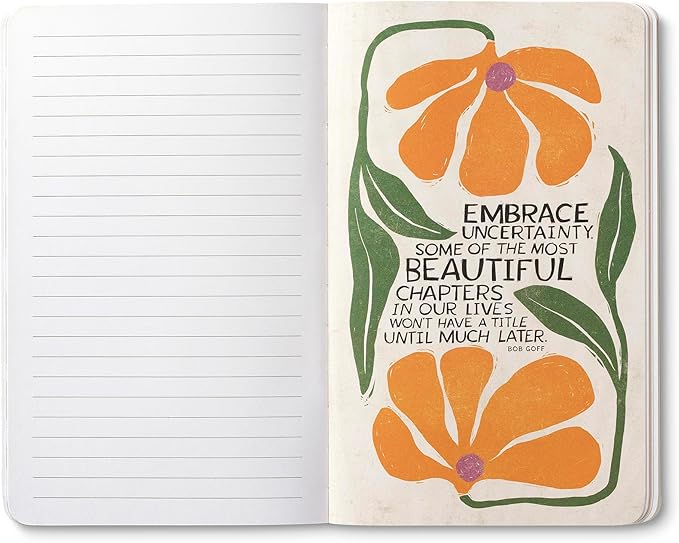 EMBRACE
UNCERTAINTY.
SOME OF THE MOST
BEAUTIFUL
CHAPTERS
IN OUR LIVES
WON'T HAVE A TITLE
UNTIL MUCH LATER.
BOB GOFF